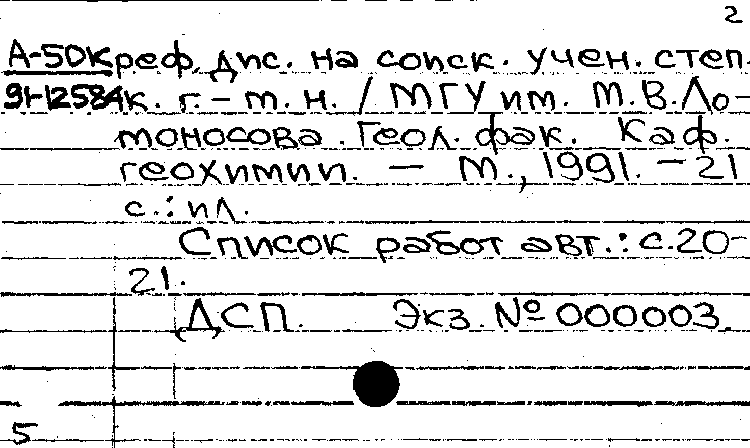 2
А-50К реф. дис. на соиск. учен. степ.
91-12584 к. г.-м. н. / МГУ им. М.В.Ло-
моносова. Геол. фак. Каф.
геохимии. — М., 1991. — 21
с.: ил.
Список работ авт.: с.20-
21.
ДСП. Экз. № 000003.
5